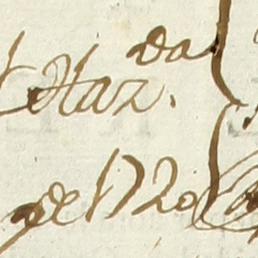 Haz.da
de 1720